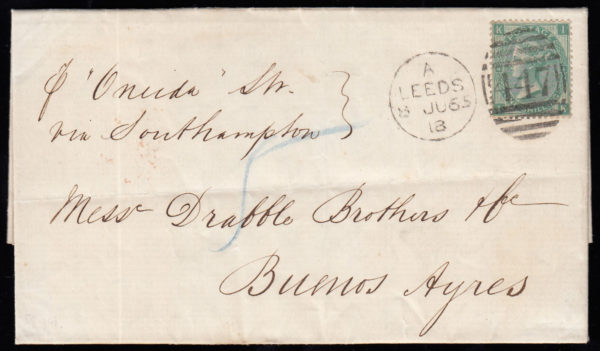 K I
POSTAGE
A
LEEDS
8 JU 65
18
447
℘ "Oneida" Str.
via Southampton
Messrs Drabble Brothers & Co
Buenos Ayres